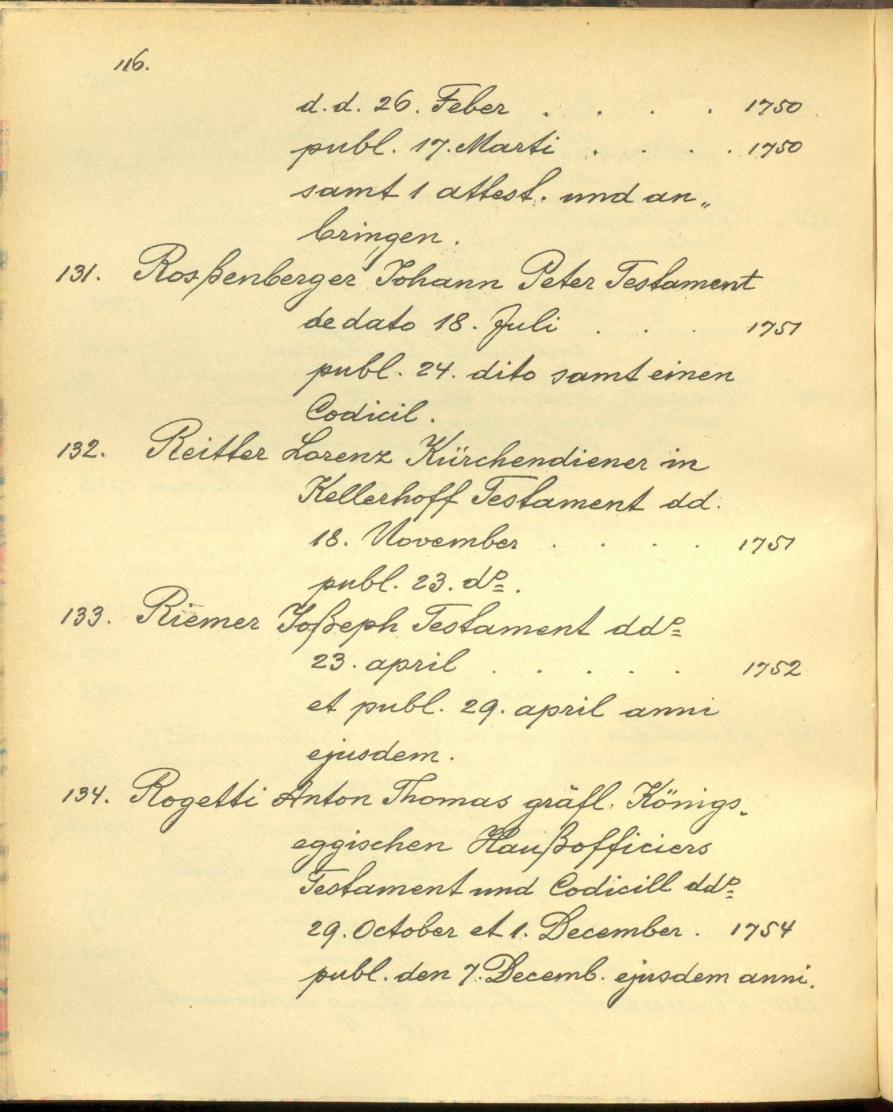 116.
d. d. 26. Feber . . . . 1750
publ. 17. Marti . . . . 1750
samt 1 attest. und an„
bringen.
131. Rosßenberger Johann Peter Testament
de dato 18. Juli . . . 1751
publ. 24. dito samt einen
Codicil.
132. Reitter Lorenz Kürchendiener in
Kellerhoff Testament dd.
18. November . . . . 1751
publ. 23. do.
133. Riemer Joßeph Testament ddo
23. april . . . . 1752
et publ. 29. april anni
ejusdem.
134. Rogetti Anton Thomas gräfl. Königs„
eggischen Haußofficiers
Testament und Codicill ddo
29. October et 1. December. 1754
publ. den 7. Decemb. ejusdem anni.